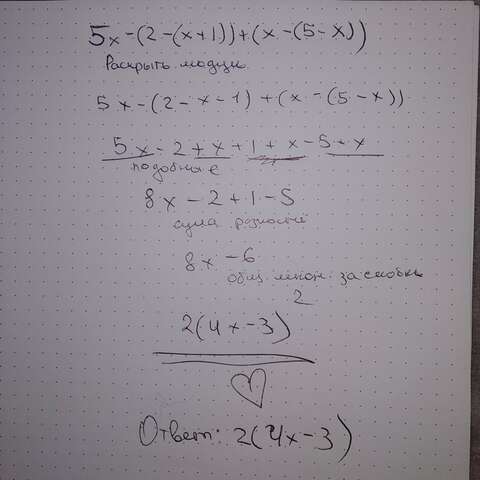 5x-(2-(x+1))+(x-(5-x))
Раскрыть модули
5x-(2-x-1)+(x-(5-x))
5x-2+x+1+x-5+x
подобные
8x-2+1-5
сума розностей
8x-6
общ. множ. за скобки
2
2(4x-3)
Ответ: 2(4x-3)